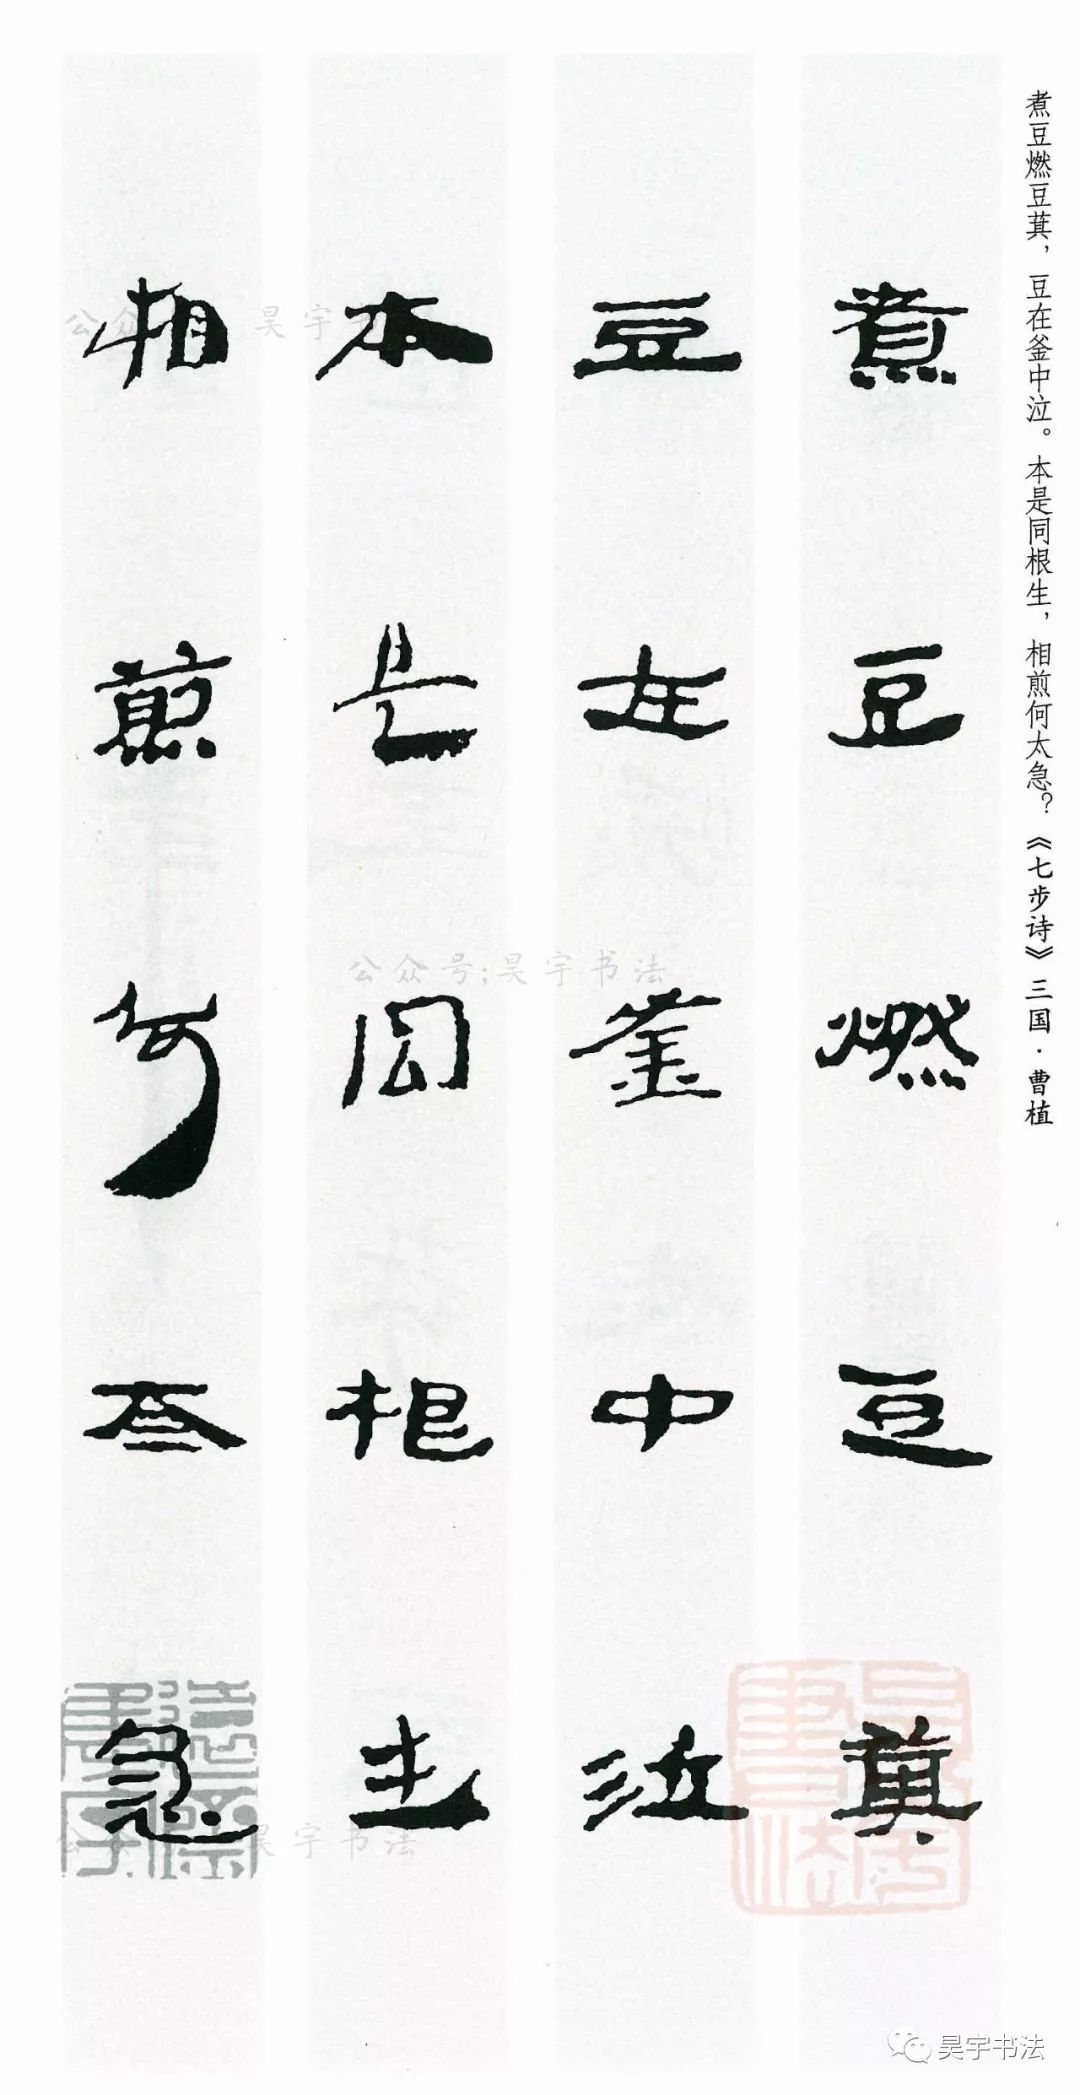 煮豆燃豆萁，豆在釜中泣。本是同根生，相煎何太急？《七步诗》三国·曹植
煮豆燃豆萁
豆在釜中泣
本是同根生
相煎何太急
公众号:昊宇书法
昊宇书法
昊宇书法